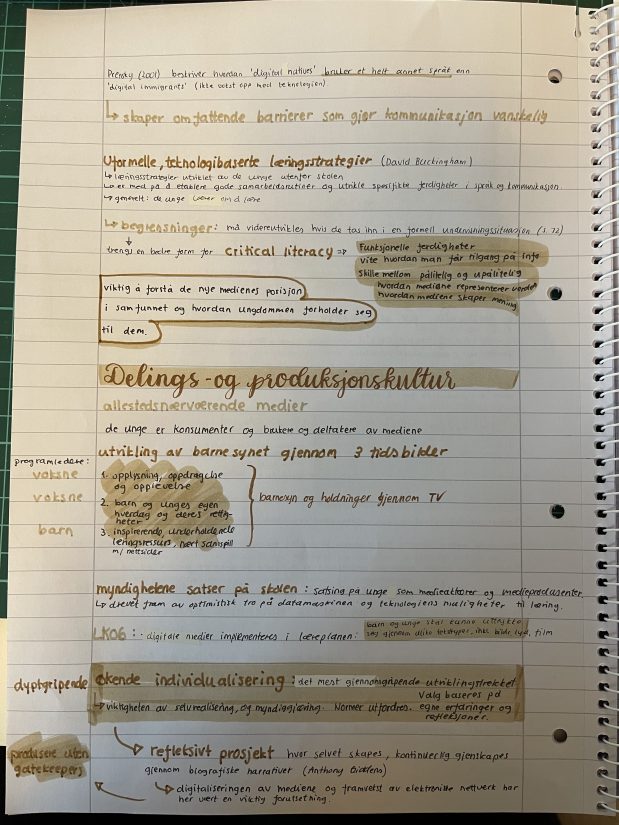 Prensky (2001) beskriver hvordan 'digital natives' bruker et helt annet språk enn
'digital immigrants' (ikke vokst opp med teknologien)
↳ skaper omfattende barrierer som gjør kommunikasjon vanskelig
Uformelle, teknologibaserte læringsstrategier (David Buckingham)
↳ læringsstrategier utviklet av de unge utenfor skolen
↳ er med på å etablere gode samarbeidsrutiner og utvikle spesifikke ferdigheter i språk og kommunikasjon.
↳ generelt: de unge lærer om å lære
↳ begrensninger: må videreutvikles hvis de tas inn i en formell undervisningssituasjon (s. 72)
trengs en bedre form for critical literacy ⇒ Funksjonelle ferdigheter
vite hvordan man får tilgang på info
Skille mellom pålitelig og upålitelig
hvordan mediene representerer verden
hvordan mediene skaper mening
viktig å forstå de nye medienes posisjon
i samfunnet og hvordan ungdommen forholder seg
til dem.
Delings- og produksjonskultur
allestedsnærværende medier
de unge er konsumenter og brukere og deltakere av mediene
utvikling av barnesynet gjennom 3 tidsbilder
programledere:
voksne 1. opplysning, oppdragelse
og opplevelse
voksne 2. barn og unges egen
hverdag og deres rettig-
heter
barn 3. inspirerende, underholdende
læringsressurs, nært samspill
m/ nettsider
barnesyn og holdninger gjennom TV
myndighetene satser på skolen: satsing på unge som medieaktører og medieprodusenter
↳ drevet fram av optimistisk tro på datamaskinen og teknologiens muligheter til læring.
LK06: digitale medier implementeres i læreplanen: barn og unge skal kunne uttrykke
seg gjennom ulike teksttyper, inkl. bilde, lyd, film
dyptgripende økende individualisering: det mest gjennomgripende utviklingstrekket
Valg baseres på
↳ viktigheten av selvrealisering, og myndiggjøring. Normer utfordres. egne erfaringer og
refleksjoner.
↳ refleksivt prosjekt hvor selvet skapes, kontinuerlig gjenskapes
gjennom biografiske narrativer (Anthony Giddens)
produsere uten
gatekeepers
↳ digitaliseringen av mediene og framvekst av elektroniske nettverk har
her vært en viktig forutsetning.